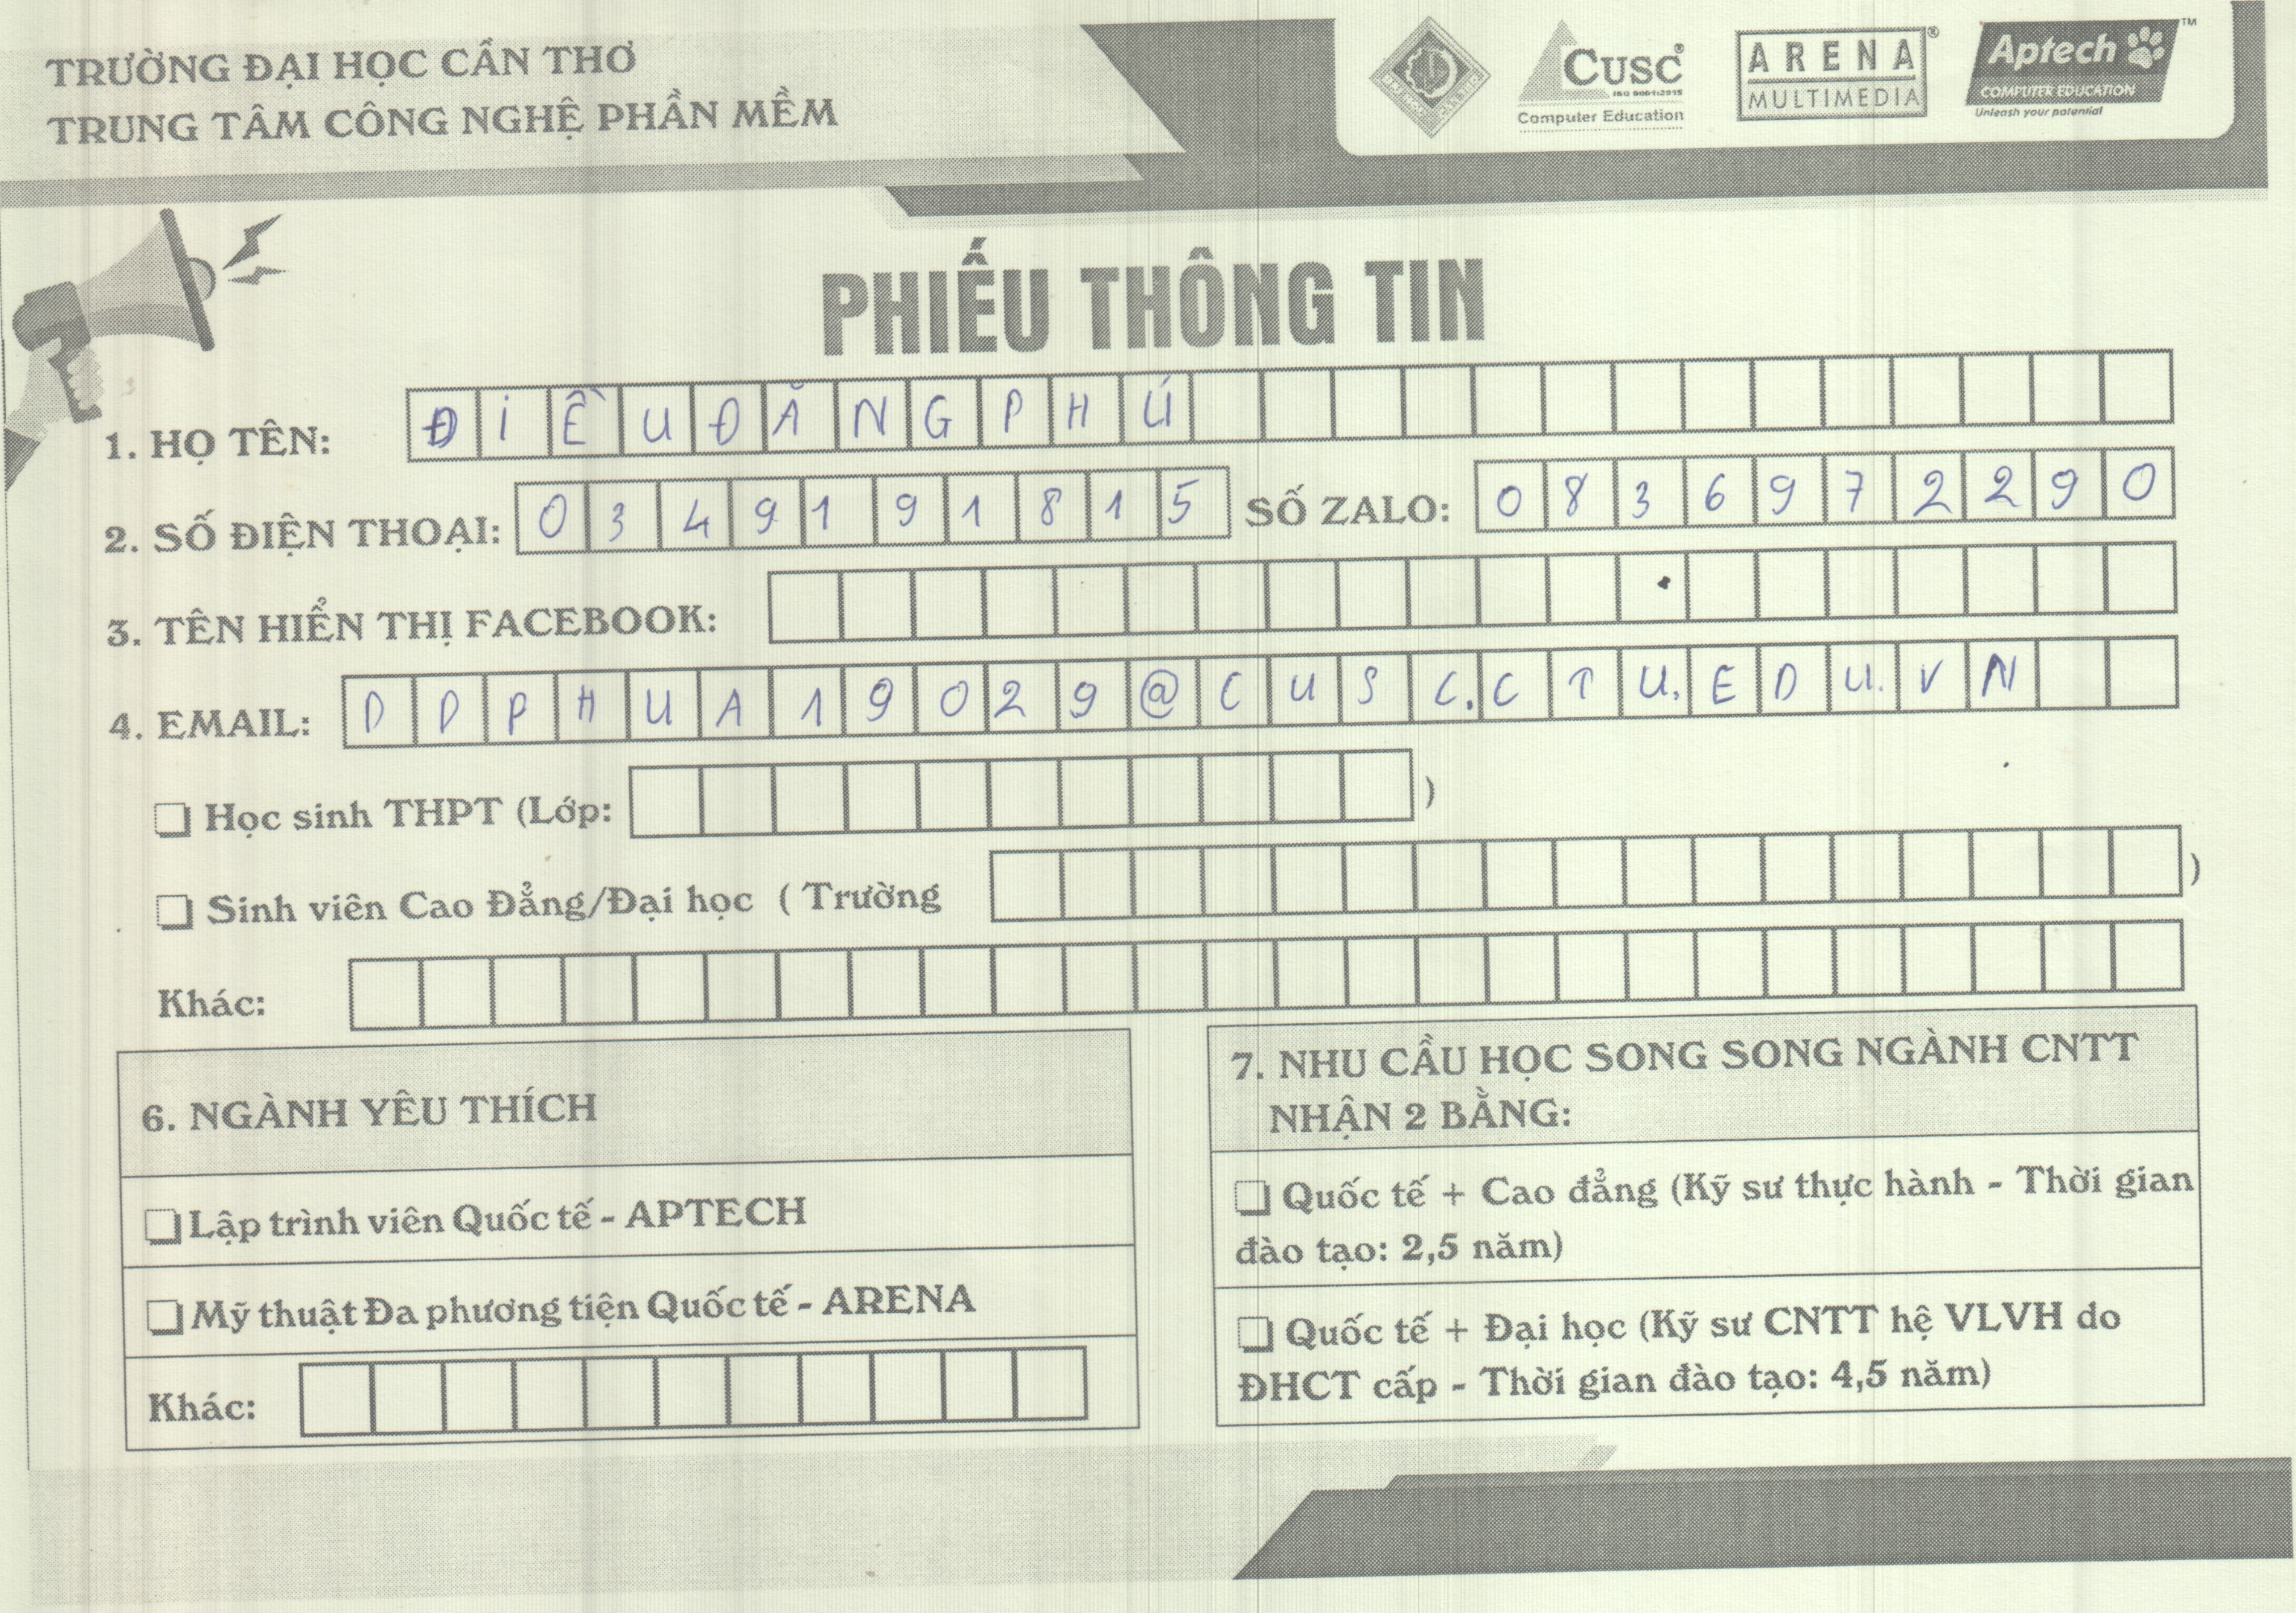 TRƯỜNG ĐẠI HỌC CẦN THƠ
TRUNG TÂM CÔNG NGHỆ PHẦN MỀM
CUSC®
ISO 9001:2015
Computer Education
ARENA®
MULTIMEDIA
Aptech™
COMPUTER EDUCATION
Unleash your potential
PHIẾU THÔNG TIN
1. HỌ TÊN: ĐIỀUĐĂNGPHÚ
2. SỐ ĐIỆN THOẠI: 0349191815 SỐ ZALO: 0836972290
3. TÊN HIỂN THỊ FACEBOOK:
4. EMAIL: DDPHUA19029@CUSC.CTU.EDU.VN
❏ Học sinh THPT (Lớp: )
❏ Sinh viên Cao Đẳng/Đại học ( Trường )
Khác:
6. NGÀNH YÊU THÍCH
❏ Lập trình viên Quốc tế - APTECH
❏ Mỹ thuật Đa phương tiện Quốc tế - ARENA
Khác:
7. NHU CẦU HỌC SONG SONG NGÀNH CNTT
NHẬN 2 BẰNG:
❏ Quốc tế + Cao đẳng (Kỹ sư thực hành - Thời gian
đào tạo: 2,5 năm)
❏ Quốc tế + Đại học (Kỹ sư CNTT hệ VLVH do
ĐHCT cấp - Thời gian đào tạo: 4,5 năm)